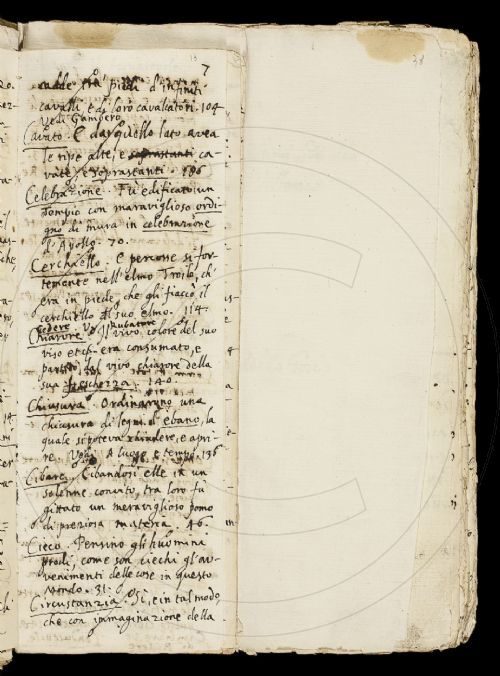 7
cadde tra' piedi d'infiniti
cavalli e di loro cavalcatori. 104.
Vedi Gambero
Cavato. E da quello lato avea
le ripe alte, e soprastanti ca-
vate, e soprastanti. 186
Celebrazione. Fu edificato un
Tempio con maraviglioso ordi-
gno di mura in celebrazione
d'Apollo. 70.
Cerchiello. E percosse sì for-
temente nell'elmo Troilo, ch'
era in piede, che gli fiaccò il
cerchiello del suo elmo. 114.
Cedere V. Rubatore
Chiarore. Il vivo colore del suo
viso era consumato, e
partito il vivo chiarore della
sua freschezza. 140.
Chiusura. Ordinarono una
chiusura di legni d'ebano, la
quale si poteva chiudere, e apri-
re. A luogo e tempo. 136
Cibare. Cibandosi elle in un
solenne convito, tra loro fu
gittato un maraviglioso pomo
di preziosa materia. 46.
Cieco. Pensino gli huomini
prodi, come son ciechi gli av-
venimenti delle cose in questo
Mondo. 31.
Circustanzia. Sì, e in tal modo,
che con immaginazione della